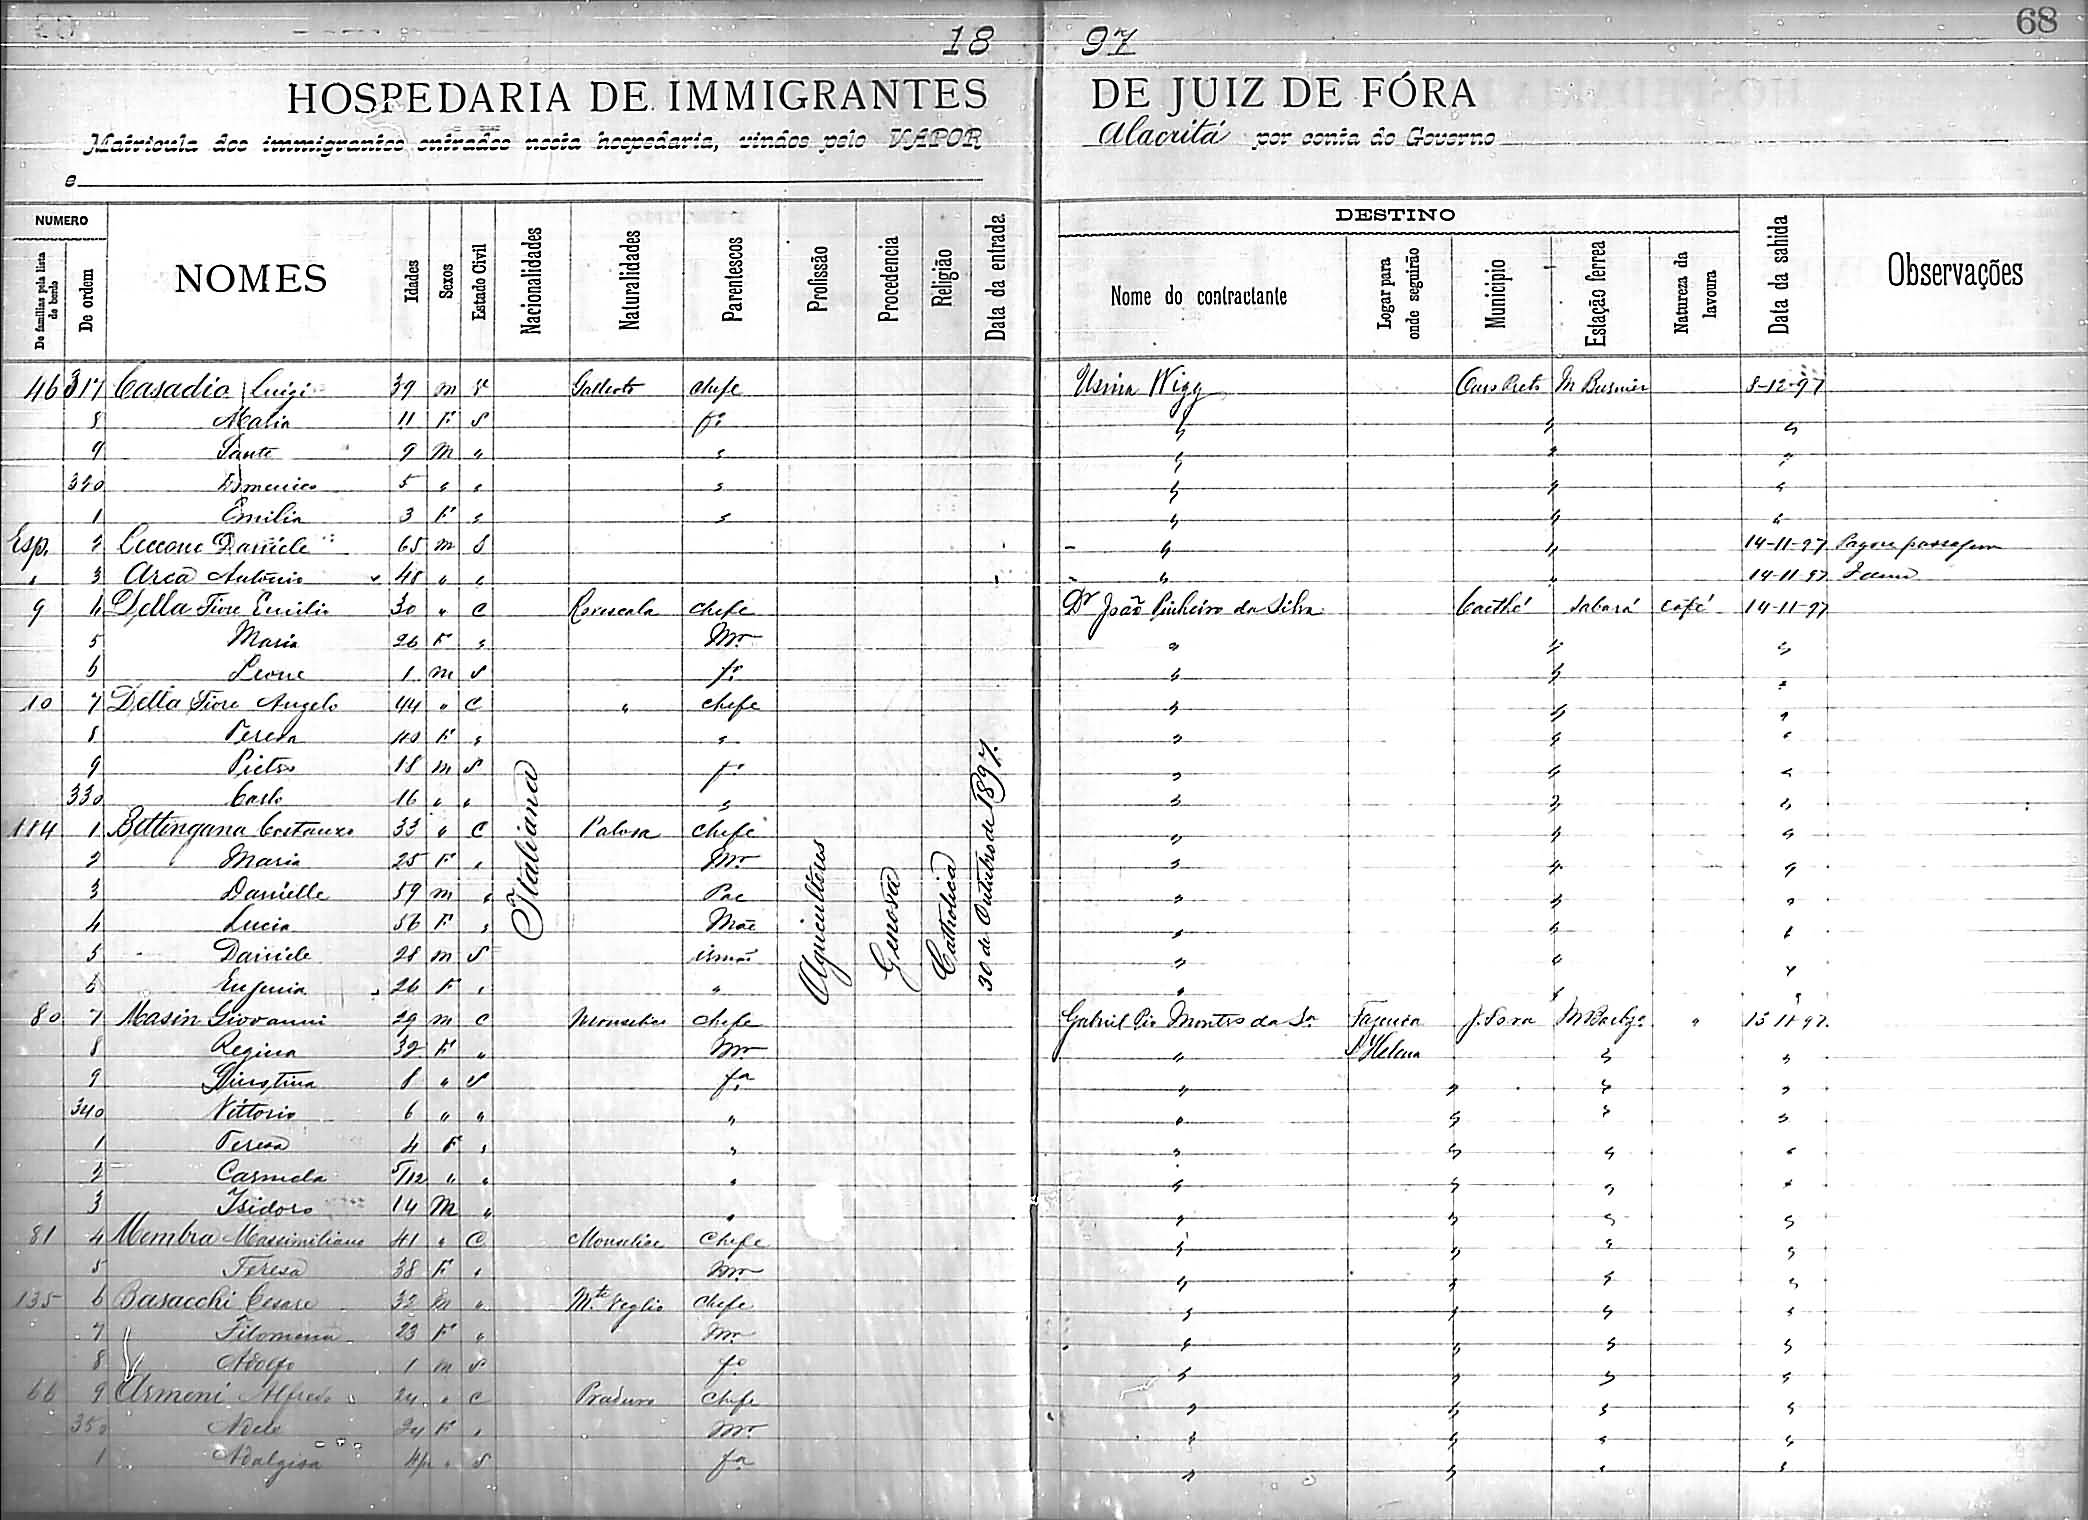 68
18 97
HOSPEDARIA DE IMMIGRANTES DE JUIZ DE FÓRA
Matricula dos immigrantes entrados nesta hospedaria, vindos pelo VAPOR Alacritá por conta do Governo
e
NUMERO
De familias pela lista de bordo
De ordem
NOMES
Idades
Sexos
Estado Civil
Nacionalidades
Naturalidades
Parentescos
Profissão
Procedencia
Religião
Data da entrada
DESTINO
Nome do contractante
Logar para onde seguirão
Municipio
Estação ferrea
Natureza da lavoura
Data da sahida
Observações
46 317 Casadio Luigi 39 m chefe Usina Wigg Ouro Preto M Burnier 8-12-97
8 Malia 11 F S fa " " "
9 Sante 9 M " " " " "
320 Domenico 5 " " " " " "
1 Emilia 3 F " " " " "
Esp. 2 Ceccone Daniele 65 m S " " 14-11-97 Pagou passagem
" 3 Arca Antonio 48 " " " " 14-11-97 Idem
9 4 Della Fiore Emilio 30 " C Rovescala chefe Dr João Pinheiro da Silva Caethé Sabará café 14-11-97
5 Maria 26 F " Mr " " "
6 Leone 1 m S fo " " "
10 7 Della Fiore Angelo 44 " C " chefe " " "
8 Teresa 40 F " " " " "
9 Pietro 18 m S fo " " "
330 Carlo 16 " " " " " "
184 1 Bottingana Costanzo 33 " C chefe " " "
2 Maria 25 F " Mr " " "
3 Danielle 59 m " Pae " " "
4 Lucia 56 F " Mãe " " "
5 Daniele 28 m S irmão " " "
6 Eugenia 26 F " " " " "
Italiana
Agricultores
Genova
Catholica
30 de Outubro de 1897.
80 7 Masin Giovanni 29 m C Monselice chefe Gabriel Pio Montro da Sa Fazenda J. Fora M Barbza " 13 11-97.
8 Regina 32 F " Mr " Sta Helena " "
9 Giustina 8 " S fa " " " "
340 Vittorio 6 " " " " " " "
1 Teresa 4 F " " " " " "
2 Carmela 5/12 " " " " " " "
3 Isidoro 14 M " " " " " "
81 4 Membra Massimiliano 41 " C Monselice Chefe " " " "
5 Teresa 38 F " Mr " " " "
135 6 Basacchi Cesare 32 m " M.te Veglio Chefe " " " "
7 Filomena 23 F " Mr " " " "
8 Adolfo 1 m S fo " " " "
66 9 Armeni Alfredo 24 " C Praduro Chefe " " " "
350 Adele 24 F " Mr " " " "
1 Adalgisa " S fa " " " "